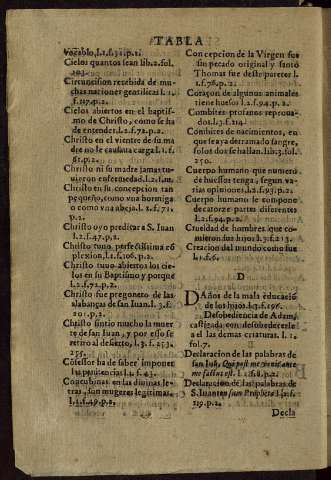 TABLA
Vocablo, l.1.f.32.p.2.
Cielos quantos sean lib.2.fol.
203.
Circuncision recebida de mu-
chas naciones gentilicas l.1.
f.117.p.2.
Cielos abiertos en el baptis-
mo de Christo, como se ha
de entender. l.2.f.72.p.2.
Christo en el vientre de su ma
dre no le causaua carga l.1.f.
81.p.2.
Christo ni su madre jamas tuui
eron enfermedad l.2.f.
Christo en su concepcion tan
pequeño, como vna hormiga
o como vna abeja. l.2.f.71.
p.2.
Christo oyo predicar a S. Iuan
l.2.f.47.p.2.
Christo tuuo perfectissima cō
plexion, l.1.f.106.p.2.
Christo tuuo abiertos los cie-
los en su Baptismo y porque
l.2.f.72.p.2.
Christo fue pregonero de las
alabanças de san Iuan. l.3.f.
201.p.2.
Christo sintio mucho la muer
te de san Iuan, y por esso se
retiro al desierto, l.3.f.253.
255.
Cōfessor ha de saber imponer
las penitencias l.2.f.43.
Concubinas en las diuinas le-
tras, son mugeres legitimas.
l.1.f.49.p.2.
Concepcion de la Virgen fue
sin pecado original y santo
Thomas fue deste parecer l.
1.f.76.p.2.
Coraçon de algunos animales
tiene huesos l.2.f.94.p.2.
Combites profanos reproua-
dos l.3.f.214.
Combites de nacimientos, en
que se aya derramado sangre,
solos dos se hallan. lib.3.fol.
250.
Cuerpo humano que numero
de huessos tenga, segun va-
rias opiniones. l.2.f.93.p.2.
Cuerpo humano se compone
de catorze partes diferentes
l.2.f.94.p.2.
Crueldad de hombres que co-
mieron sus hijos l.3.f.213.
Creacion del mundo como fue
l.1.f.6.
D
DAños de la mala educació
de los hijos. l.3.f.196.
Desobediencia de Adam,
castigada con desobedecerle
el las demas criaturas. l.1.
fol.7.
Declaracion de las palabras de
san Iuā, Qui post me venit ante
me factus est. l.2.f.8.p.2.
Declaracion de las palabras de
S. Iuan non sum Propheta l.2.f.
119.p.2.
Decla